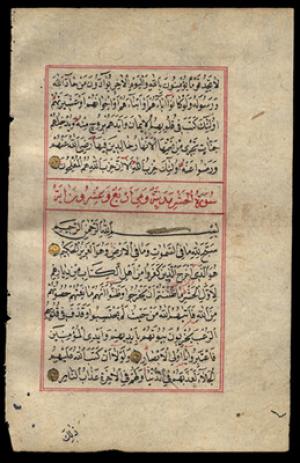 لا تجد قوما يؤمنون بالله واليوم الاخر يوادون من حاد الله
ورسوله ولو كانوا اباءهم او ابناءهم او اخوانهم او عشيرتهم
اولئك كتب في قلوبهم الايمان وايدهم بروح منه ويدخلهم
جنات تجري من تحتها الانهار خالدين فيها رضي الله عنهم
ورضوا عنه اولئك حزب الله الا ان حزب الله هم المفلحون
سورة الحشر مدنية وهي اربع وعشرون اية
بسم الله الرحمن الرحيم
سبح لله ما في السموات وما في الارض وهو العزيز الحكيم
هو الذي اخرج الذين كفروا من اهل الكتاب من ديارهم
لاول الحشر ما ظننتم ان يخرجوا وظنوا انهم مانعتهم حصونهم
من الله فاتاهم الله من حيث لم يحتسبوا وقذف في قلوبهم
الرعب يخربون بيوتهم بايديهم وايدي المؤمنين
فاعتبروا يا اولي الابصار ولولا ان كتب الله عليهم
الجلاء لعذبهم في الدنيا ولهم في الاخرة عذاب النار
ذلك